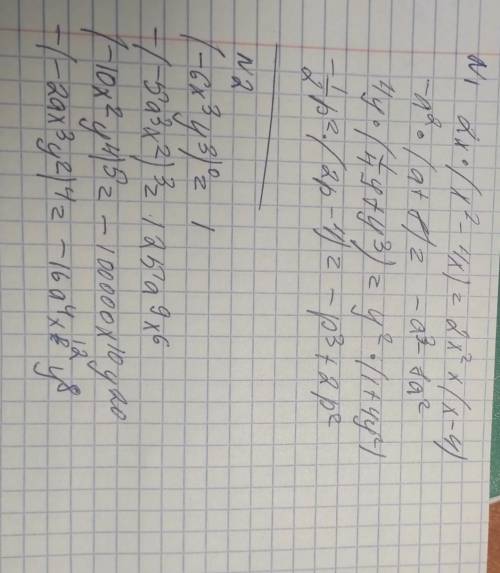 N1
2x · (x² - 4x) = 2x² × (x-4)
-a² · (a+8) = -a³-8a²
4y · (1/4 y + y³) = y² · (1+4y²)
-1/2 p² · (2p-4) = -p³+2p²
N2
(-6x³y³)⁰ = 1
-(-5a³x²)³ = 125a⁹x⁶
(-10x²y⁴)⁵ = -100000x¹⁰y²⁰
-(-2ax³y²)⁴ = -16a⁴x¹²y⁸